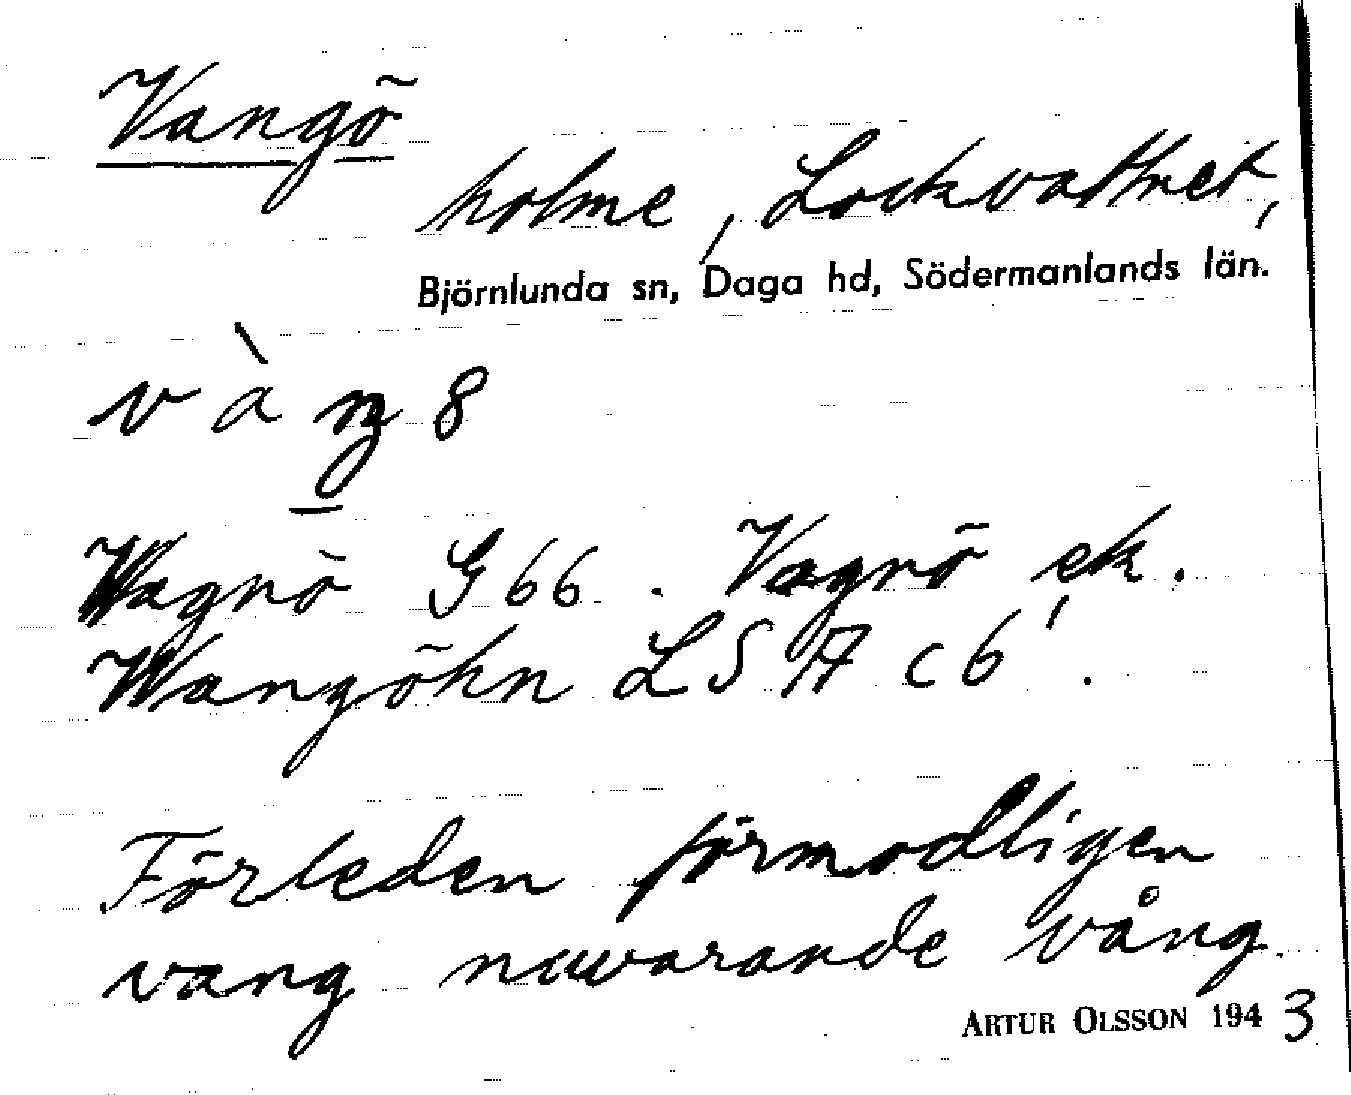 Vangö
holme, Lockvattnet,
Björnlunda sn, Daga hd, Södermanlands län.
v à ŋ 8
Wagnö G 66. Vagnö ek.
Wangöhn LSA c 6'.
Förleden förmodligen
vang nuvarande vång.
ARTUR OLSSON 1943